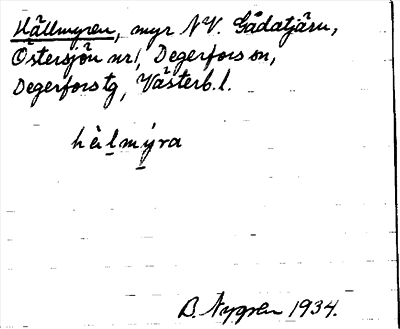 Hällmyren, myr NV. Gådatjärn,
Östersjön nr 1, Degerfors sn,
Degerfors tg, Västerb. l.
hèlmýra
B. Nygren 1934.